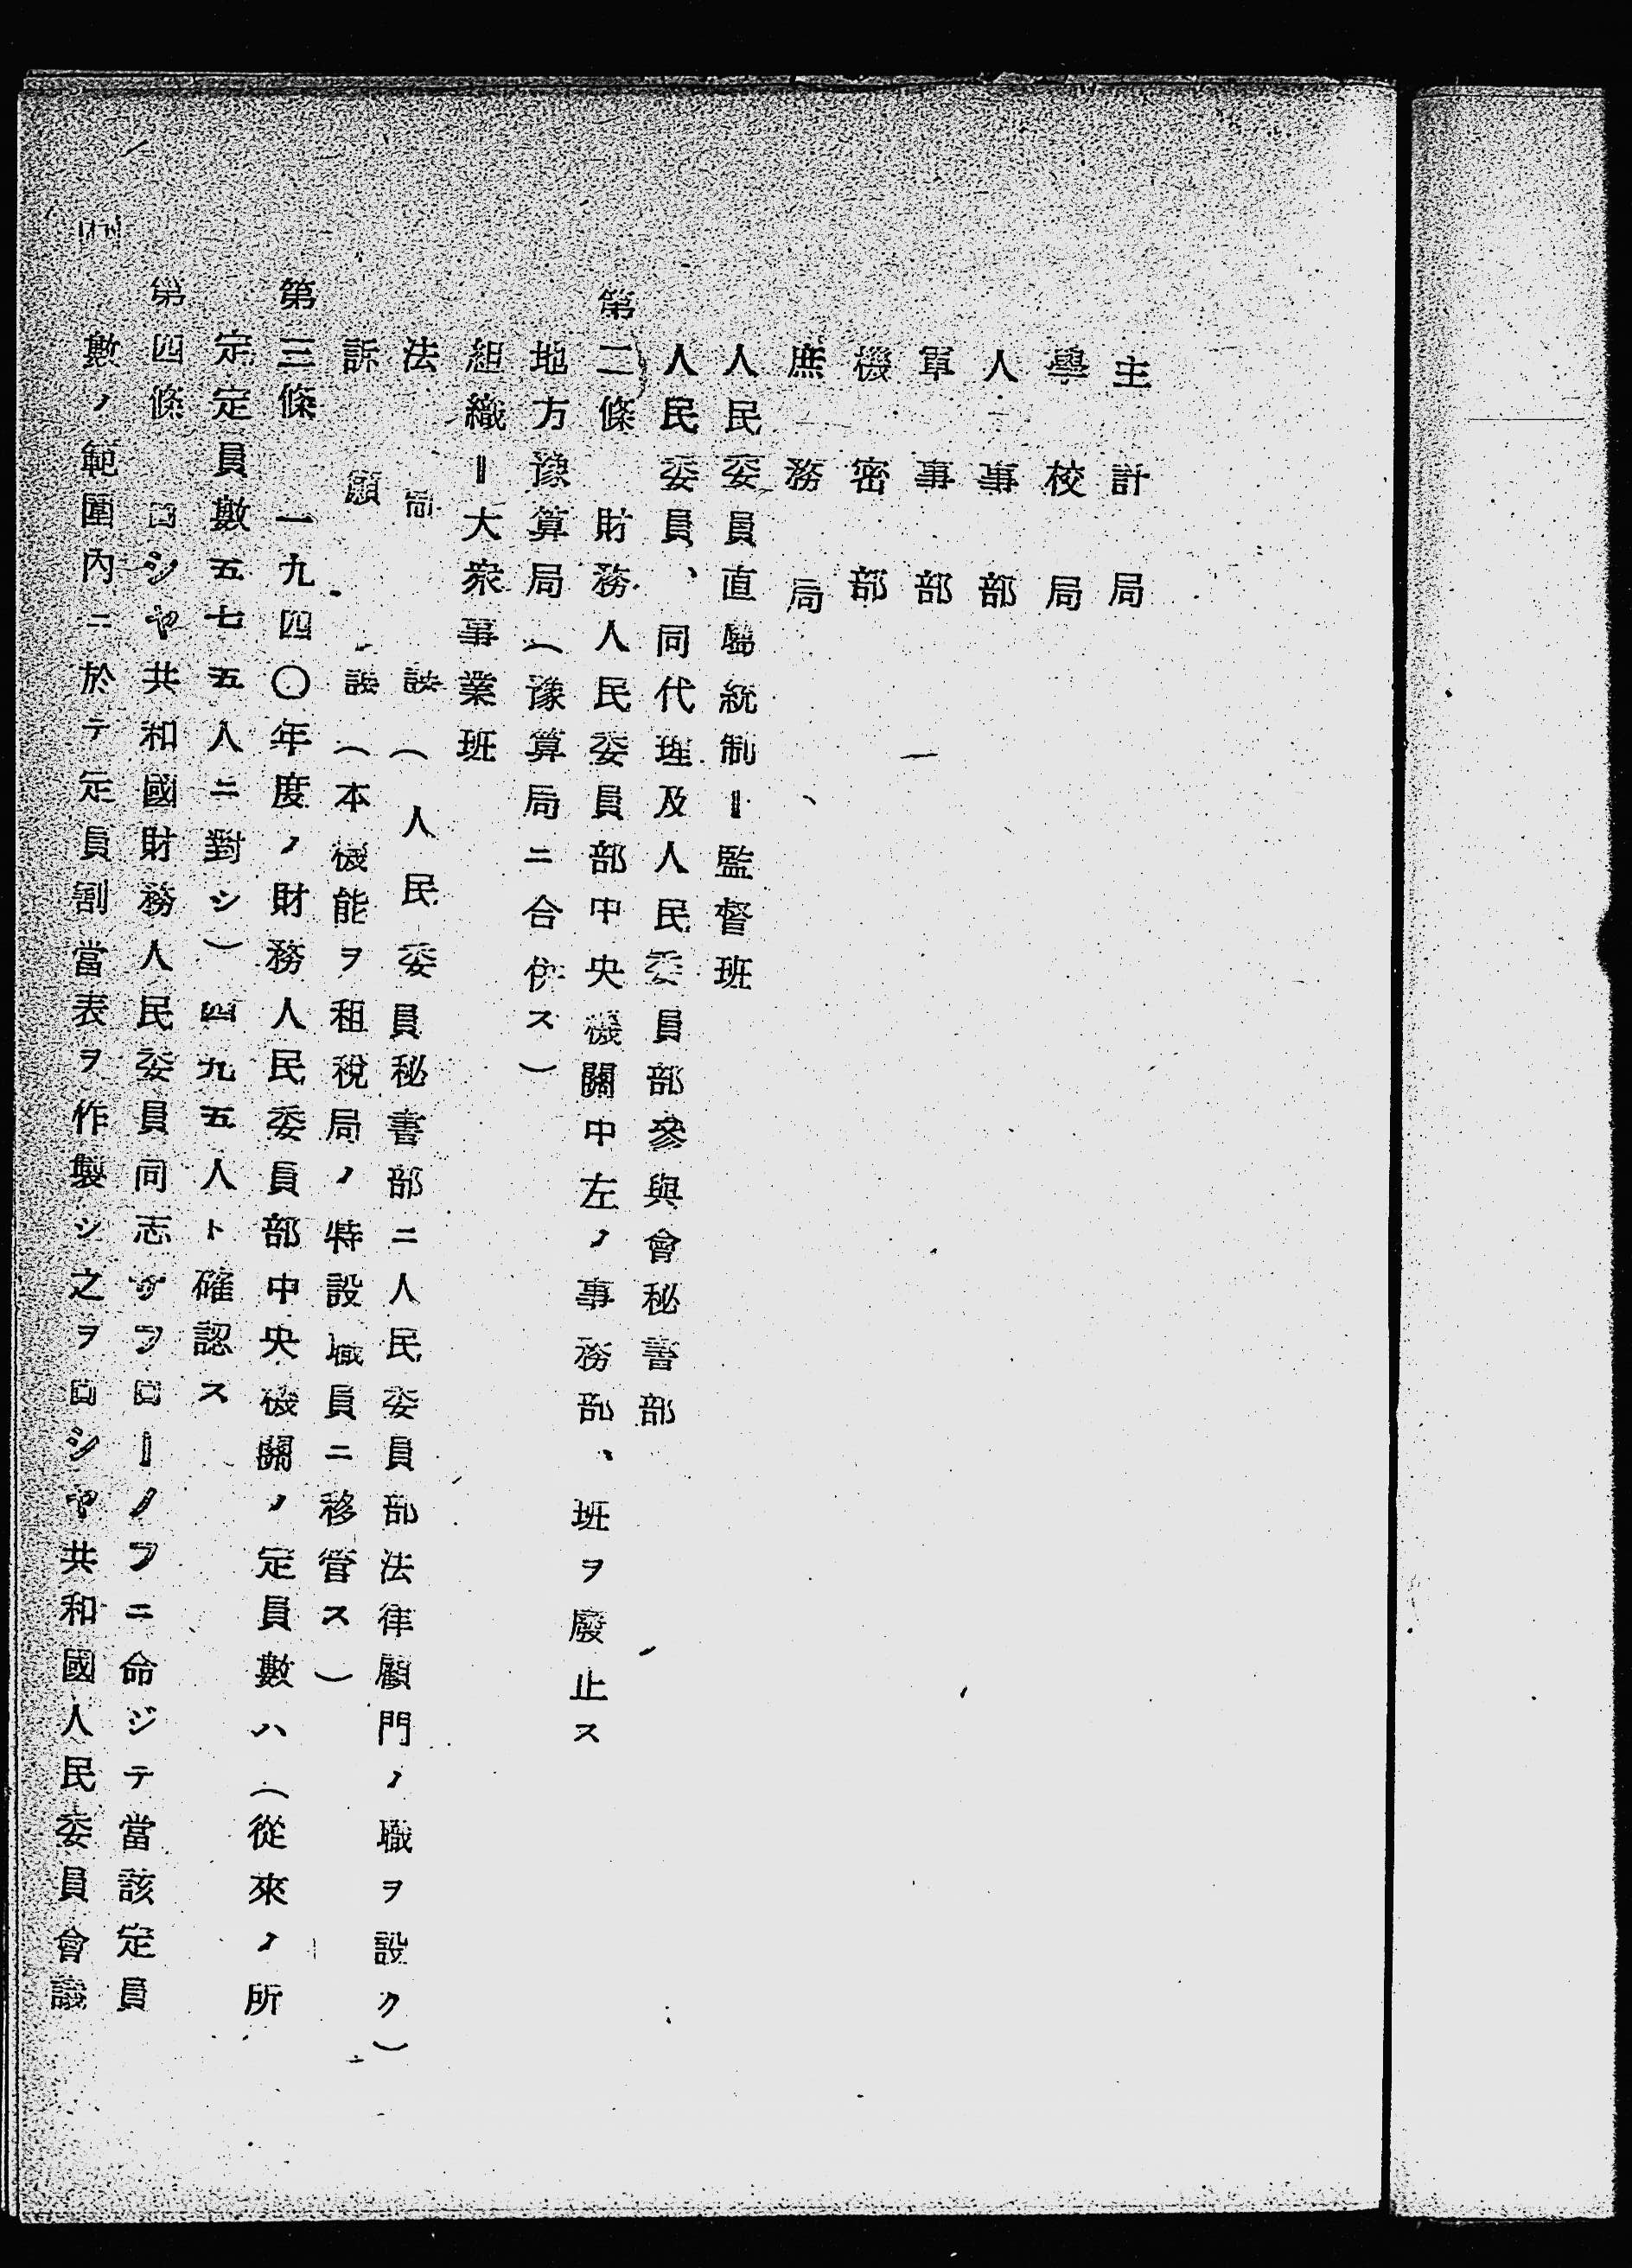 主計局
學校局
人事部
軍事部
機密部
庶務局
人民委員直屬統制ー監督班
人民委員、同代理及人民委員部參與會秘書部
第二條　財務人民委員部中央機關中左ノ事務部、班ヲ廢止ス
地方豫算局（豫算局ニ合併ス）
組織ー大衆事業班
法制課（人民委員秘書部ニ人民委員部法律顧門ノ職ヲ設ク）
訴願課（本機能ヲ租稅局ノ特設職員ニ移管ス）
第三條　一九四〇年度ノ財務人民委員部中央機關ノ定員數ハ（從來ノ所
定定員數五七五人ニ對シ）四九五人ト確認ス
第四條　ロシヤ共和國財務人民委員同志サフローノフニ命ジテ當該定員
數ノ範圍內ニ於テ定員割當表ヲ作製シ之ヲロシヤ共和國人民委員會議
四